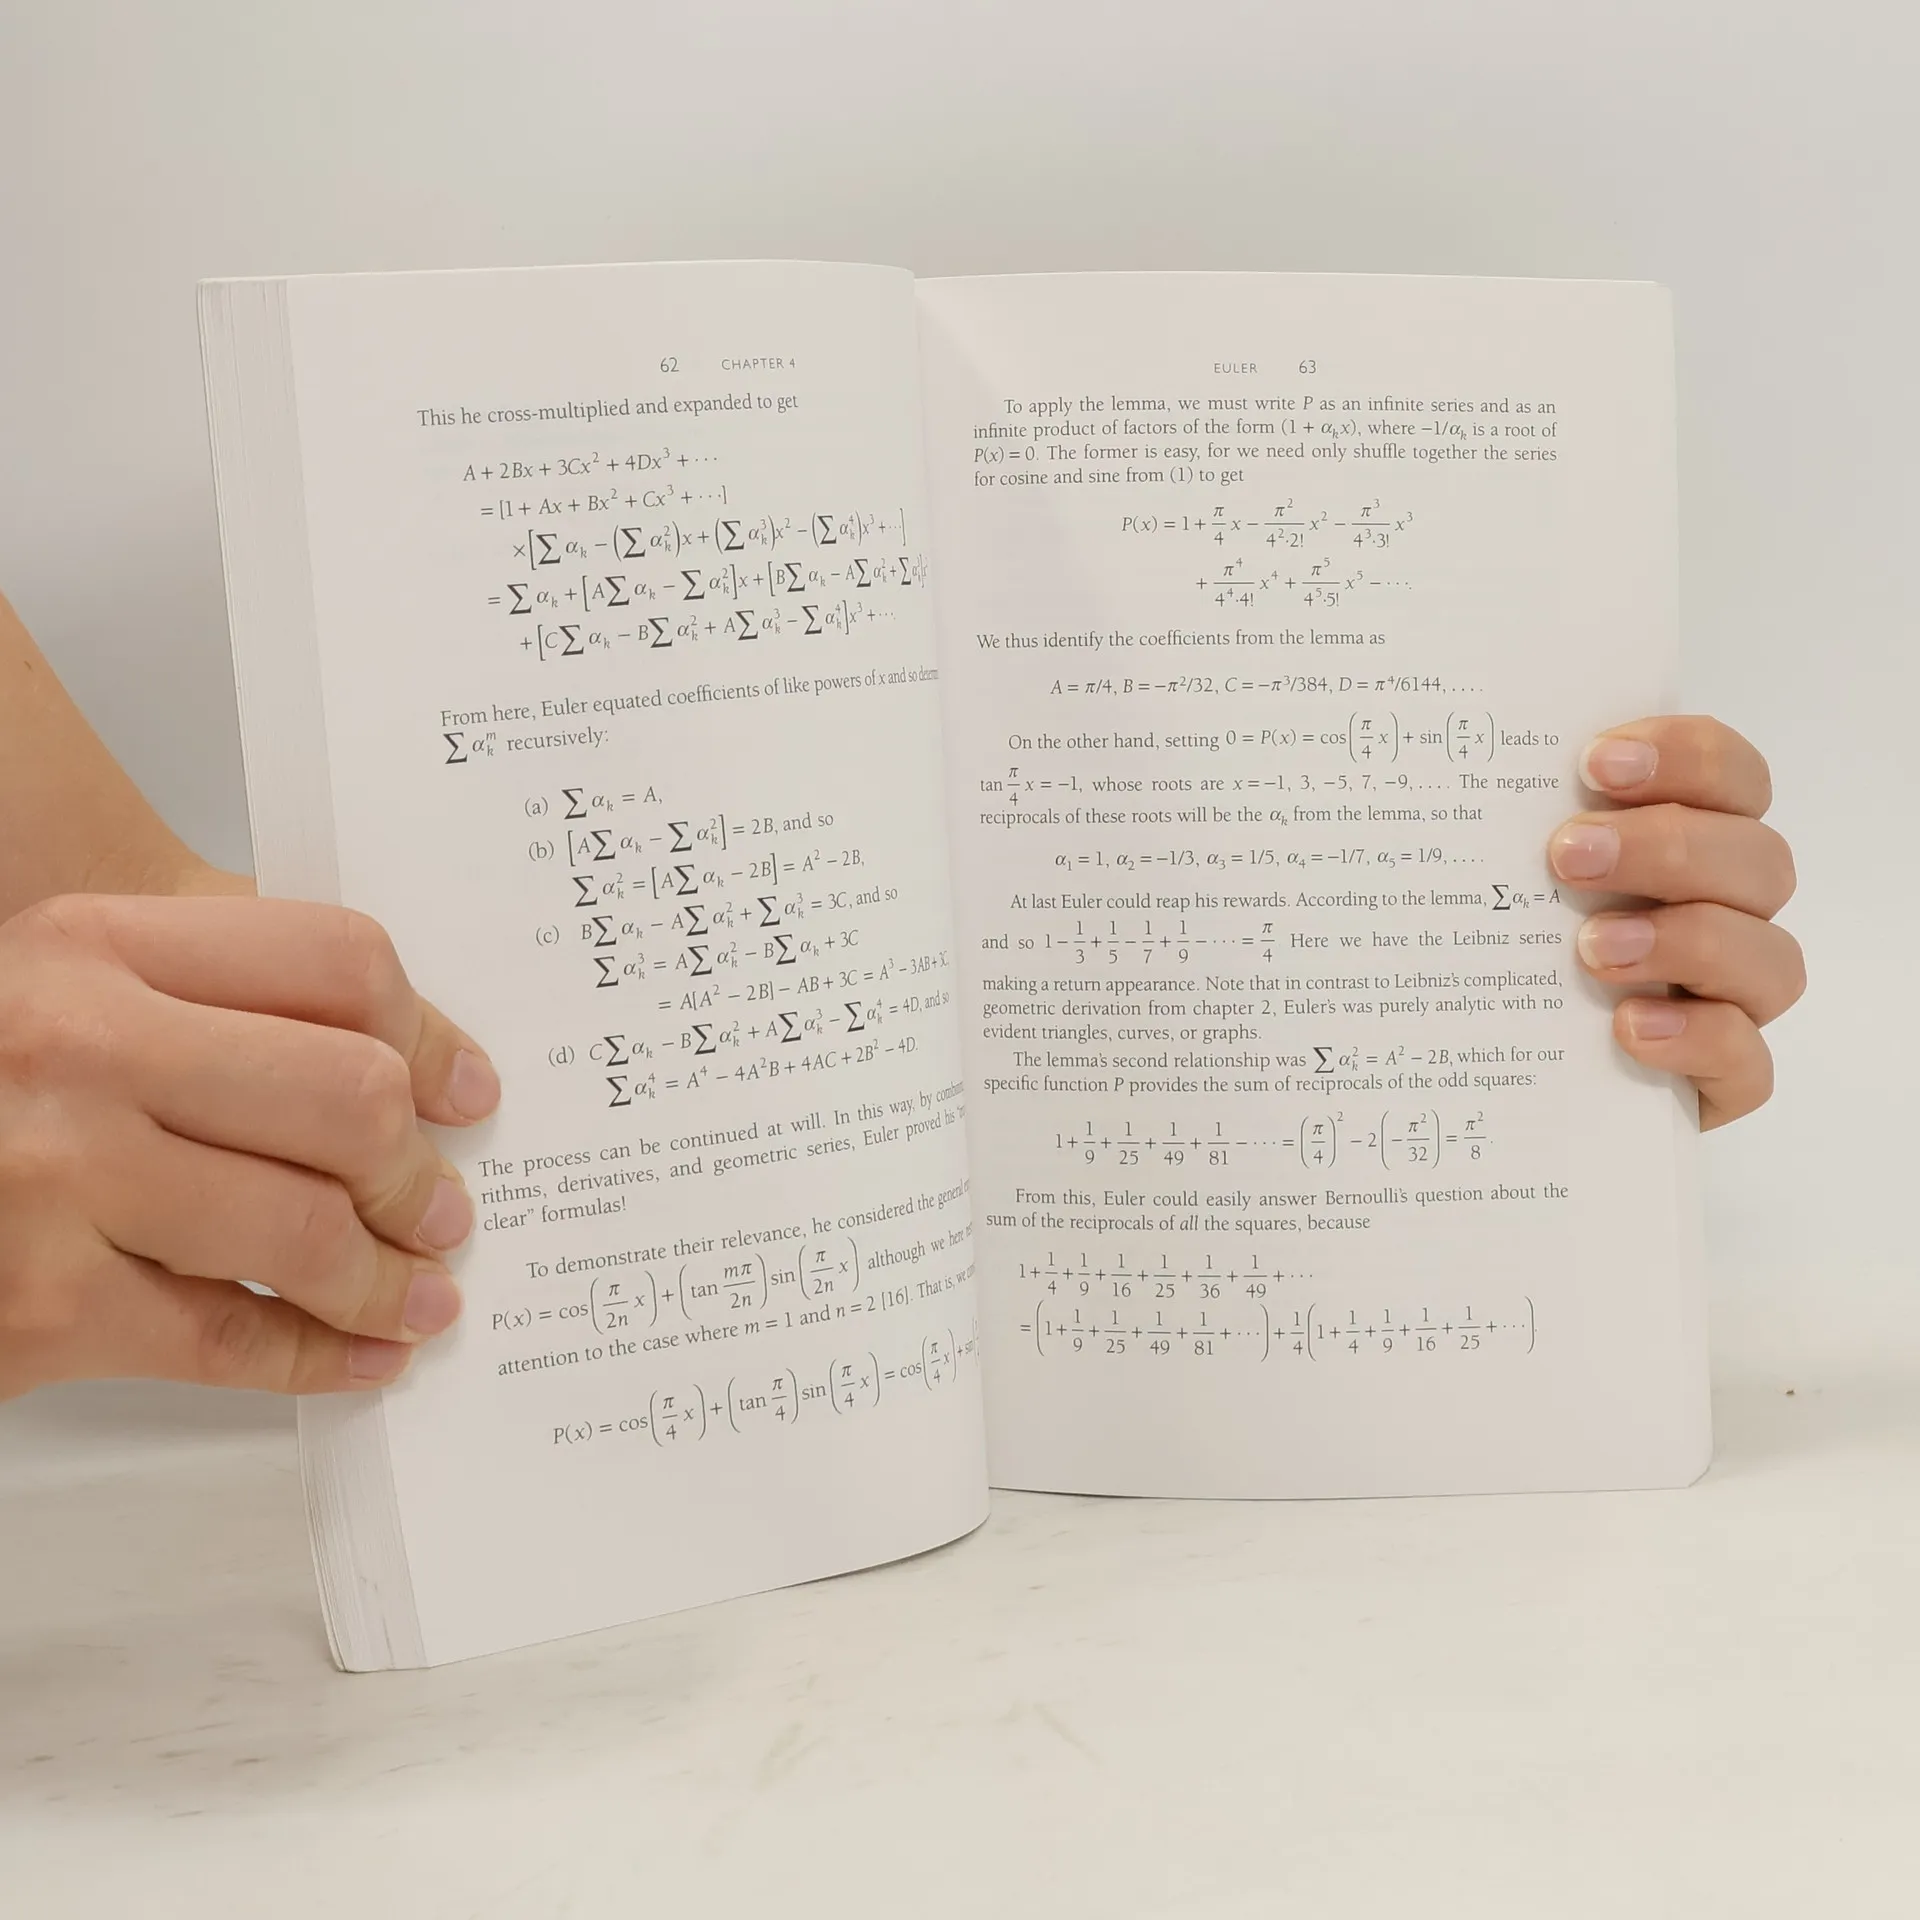 62 CHAPTER 4
This he cross-multiplied and expanded to get
A + 2Bx + 3Cx² + 4Dx³ + ···
= [1 + Ax + Bx² + Cx³ + ···]
×[∑αₖ − (∑αₖ²)x + (∑αₖ³)x² − (∑αₖ⁴)x³ + ···]
= ∑αₖ + [A∑αₖ − ∑αₖ²]x + [B∑αₖ − A∑αₖ² + ∑αₖ³]x²
+ [C∑αₖ − B∑αₖ² + A∑αₖ³ − ∑αₖ⁴]x³ + ···.
From here, Euler equated coefficients of like powers of x and so
∑αₖᵐ recursively:
(a) ∑αₖ = A,
(b) [A∑αₖ − ∑αₖ²] = 2B, and so
∑αₖ² = [A∑αₖ − 2B] = A² − 2B,
(c) B∑αₖ − A∑αₖ² + ∑αₖ³ = 3C, and so
∑αₖ³ = A∑αₖ² − B∑αₖ + 3C
= A[A² − 2B] − AB + 3C = A³ − 3AB + 3C.
(d) C∑αₖ − B∑αₖ² + A∑αₖ³ − ∑αₖ⁴ = 4D, and so
∑αₖ⁴ = A⁴ − 4A²B + 4AC + 2B² − 4D.
The process can be continued at will. In this way, by
rithms, derivatives, and geometric series, Euler proved his
clear” formulas!
To demonstrate their relevance, he considered the general
P(x) = cos(π/2n x) + (tan mπ/2n) sin(π/2n x) although we here
attention to the case where m = 1 and n = 2 [16]. That is, we
P(x) = cos(π/4 x) + (tan π/4) sin(π/4 x) = cos(π/4 x) + sin
EULER 63
To apply the lemma, we must write P as an infinite series and as an
infinite product of factors of the form (1 + αₖx), where −1/αₖ is a root of
P(x) = 0. The former is easy, for we need only shuffle together the series
for cosine and sine from (1) to get
P(x) = 1 + π/4 x − π²/4²·2! x² − π³/4³·3! x³
+ π⁴/4⁴·4! x⁴ + π⁵/4⁵·5! x⁵ − ···.
We thus identify the coefficients from the lemma as
A = π/4, B = −π²/32, C = −π³/384, D = π⁴/6144, ....
On the other hand, setting 0 = P(x) = cos(π/4 x) + sin(π/4 x) leads to
tan π/4 x = −1, whose roots are x = −1, 3, −5, 7, −9, .... The negative
reciprocals of these roots will be the αₖ from the lemma, so that
α₁ = 1, α₂ = −1/3, α₃ = 1/5, α₄ = −1/7, α₅ = 1/9, ....
At last Euler could reap his rewards. According to the lemma, ∑αₖ = A
and so 1 − 1/3 + 1/5 − 1/7 + 1/9 − ··· = π/4 Here we have the Leibniz series
making a return appearance. Note that in contrast to Leibniz's complicated,
geometric derivation from chapter 2, Euler's was purely analytic with no
evident triangles, curves, or graphs.
The lemma's second relationship was ∑αₖ² = A² − 2B, which for our
specific function P provides the sum of reciprocals of the odd squares:
1 + 1/9 + 1/25 + 1/49 + 1/81 − ··· = (π/4)² − 2(−π²/32) = π²/8.
From this, Euler could easily answer Bernoulli's question about the
sum of the reciprocals of all the squares, because
1 + 1/4 + 1/9 + 1/16 + 1/25 + 1/36 + 1/49 + ···
= (1 + 1/9 + 1/25 + 1/49 + 1/81 + ···) + 1/4(1 + 1/4 + 1/9 + 1/16 + 1/25 + ···).